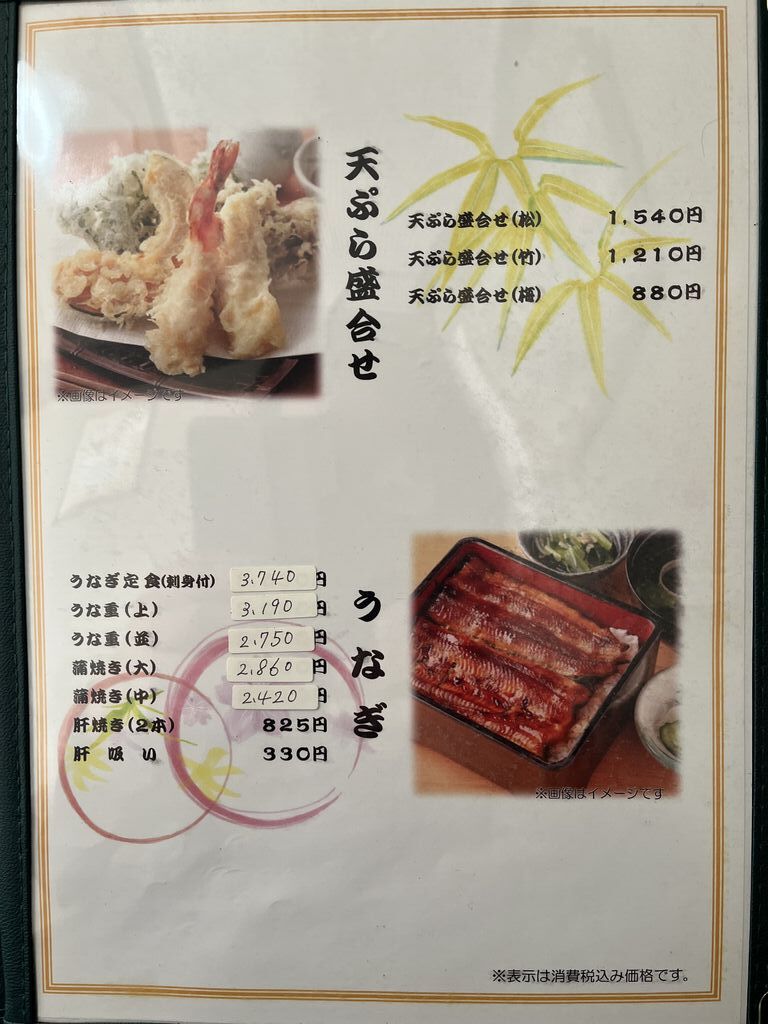 天ぷら盛合せ
天ぷら盛合せ(松) 1,540円
天ぷら盛合せ(竹) 1,210円
天ぷら盛合せ(梅) 880円
※画像はイメージです
うなぎ
うなぎ定食(刺身付) 3,740円
うな重(上) 3,190円
うな重(並) 2,750円
蒲焼き(大) 2,860円
蒲焼き(中) 2,420円
肝焼き(2本) 825円
肝吸い 330円
※画像はイメージです
※表示は消費税込み価格です。